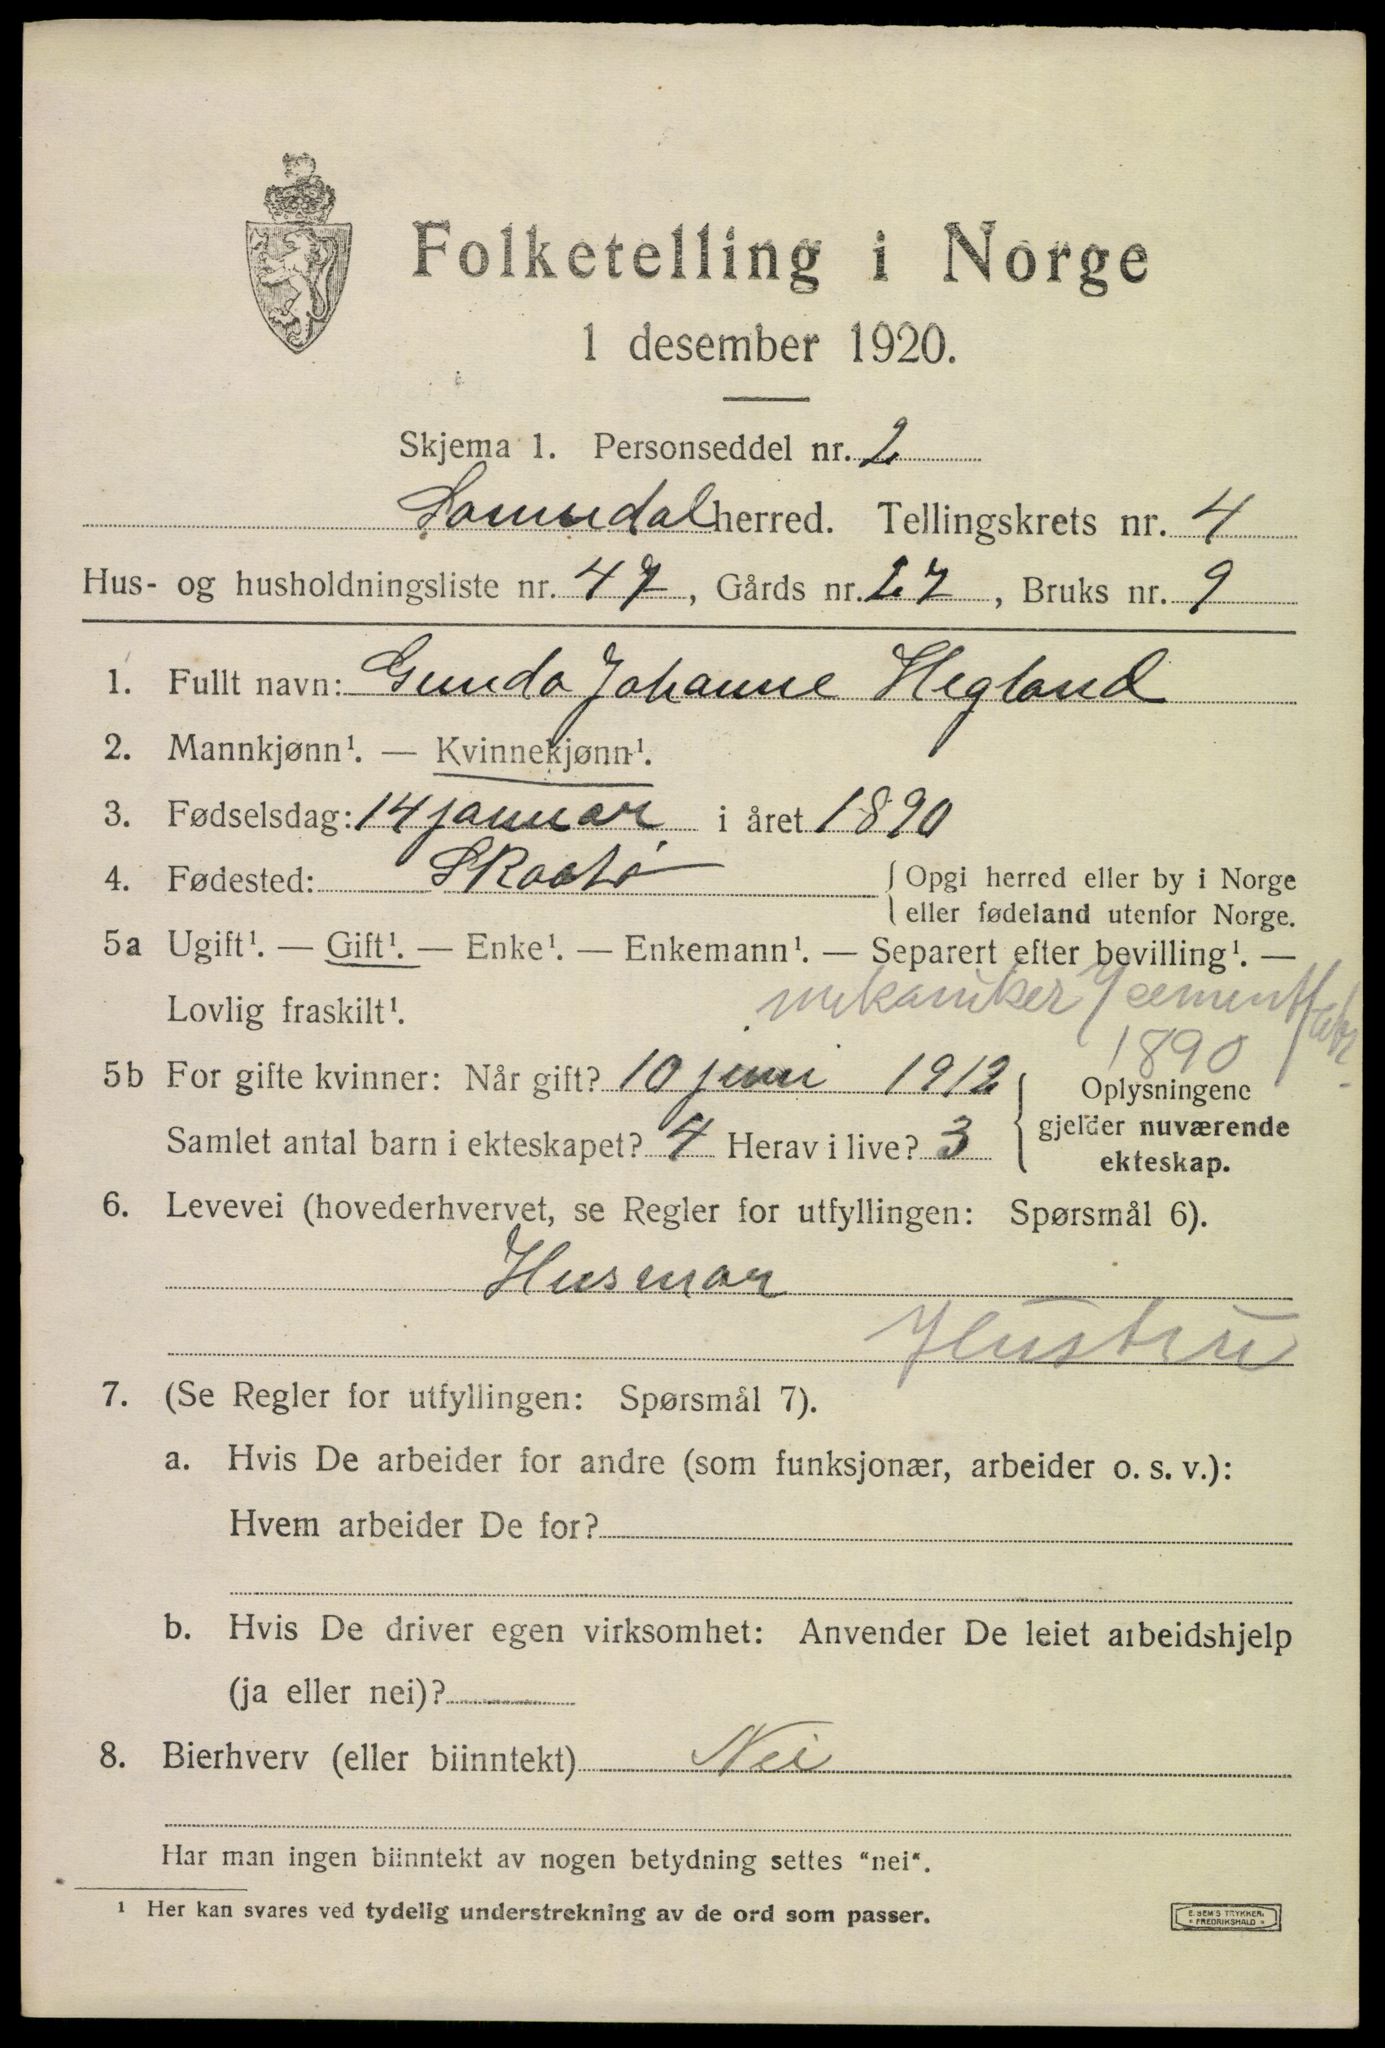 Folketelling i Norge
1 desember 1920.
Skjema 1. Personseddel nr. 2
herred. Tellingskrets nr. 4
Hus- og husholdningsliste nr. 47, Gårds nr. 27, Bruks nr. 9
1. Fullt navn: Gunda Johanne Hegland
2. Mannkjønn¹. — Kvinnekjønn¹.
3. Fødselsdag: 14 januar i året 1890
4. Fødested: Skaatø { Opgi herred eller by i Norge
eller fødeland utenfor Norge.
5a Ugift¹. — Gift¹. — Enke¹. — Enkemann¹. — Separert efter bevilling¹. —
Lovlig fraskilt¹. mekaniker cementfabr.
1890
5b For gifte kvinner: Når gift? 10 juni 1912 { Oplysningene
gjelder nuværende
ekteskap.
Samlet antal barn i ekteskapet? 4 Herav i live? 3
6. Levevei (hovederhvervet, se Regler for utfyllingen: Spørsmål 6).
Husmor
Hustru
7. (Se Regler for utfyllingen: Spørsmål 7).
a. Hvis De arbeider for andre (som funksjonær, arbeider o. s. v.):
Hvem arbeider De for?
b. Hvis De driver egen virksomhet: Anvender De leiet arbeidshjelp
(ja eller nei)?
8. Bierhverv (eller biinntekt) Nei
Har man ingen biinntekt av nogen betydning settes "nei".
¹ Her kan svares ved tydelig understrekning av de ord som passer.
E. SEM'S TRYKKER.
FREDRIKSHALD